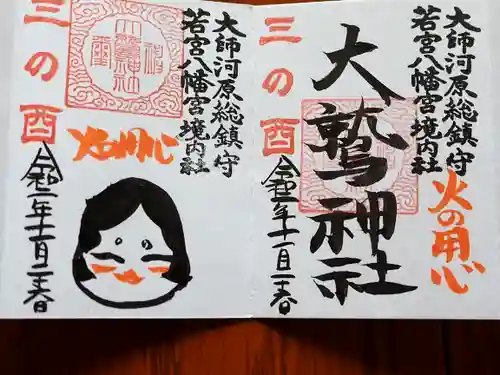 大師河原総鎮守
若宮八幡宮境内社
火の用心
大鷲神社
三の酉
令和二年十一月二十六日
大師河原総鎮守
若宮八幡宮境内社
火の用心
三の酉
令和二年十一月二十六日